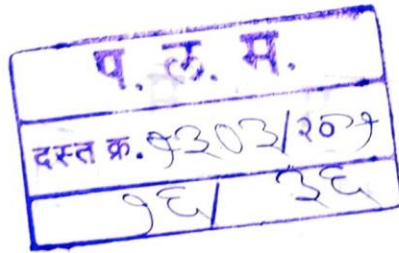 प. ल. म.
दस्त क्र. १३०३/२०११
१६/ ३६